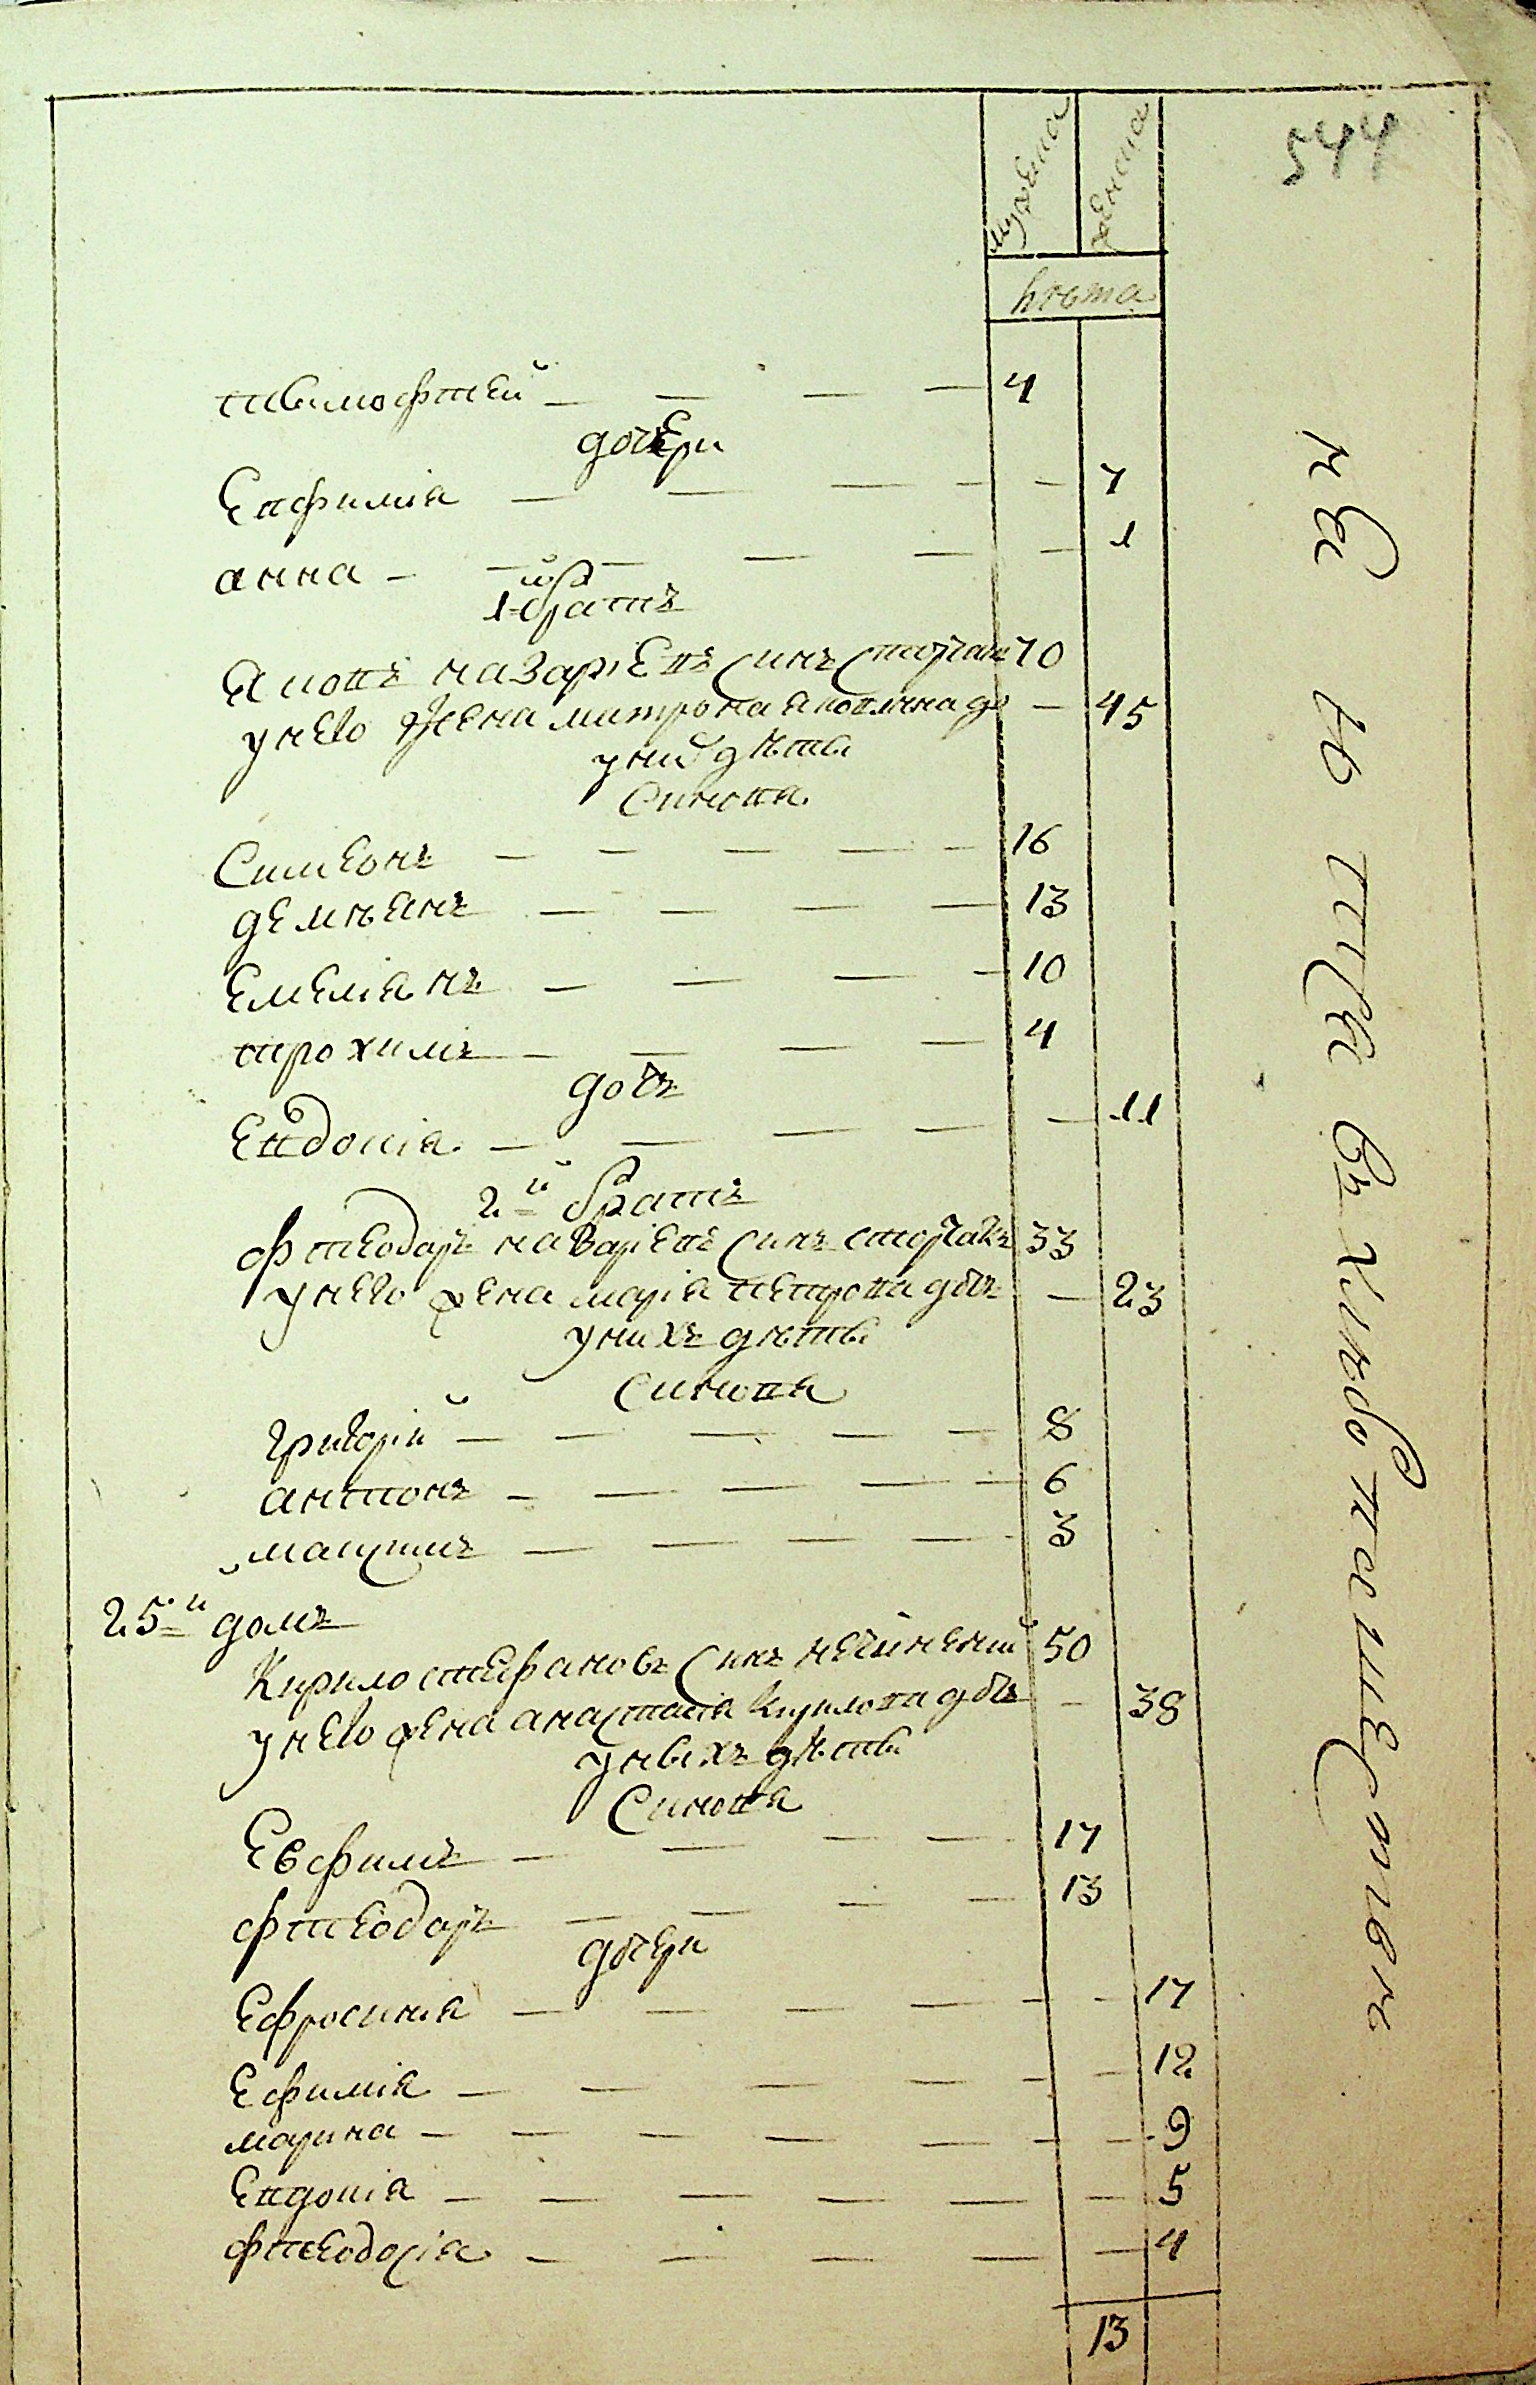 мужеска
женска
лѣта
544
тимофтей — — — — 4
дочери
Евфимія — — — — — 7
анна — — — — — 1
1й братъ
Яковъ назаріевъ синъ столчак 70
у него жена матрона яковлина до — 45
у них дѣти
Синовя
Симеонъ — — — — — 16
демьянъ — — — — 13
Емеліанъ — — — — 10
трохимъ — — — — 4
дочъ
Евдокія — — — — — 11
2й братъ
фтеодаръ назаріевъ синъ столчакъ 33
у него жена марія петрова дочъ — 23
у нихъ дѣти
Синовя
григорій — — — — — 8
антонъ — — — — — 6
максимъ — — — — 3
25й домъ
Кирило стефановъ синъ нечипений 50
у него жена анастасія кирилова дочъ — 38
у нихъ дѣти
Синовя
Евфимъ — — — — 17
фтеодаръ — — — — 13
дочери
Ефросинія — — — — — — 17
Ефимія — — — — — — 12
марина — — — — — — — 9
Евдокія — — — — — — 5
фтеодосія — — — — — 4
13